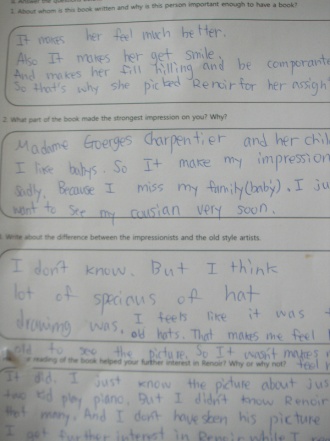 1. About whom is this book written and why is this person important enough to have a book?
It makes her feel much better.
Also It makes her get smile.
And makes her fill hilling and be comporante
So that's why she picked Renoir for her assigh
2. What part of the book made the strongest impression on you? Why?
Madame Goerges Charpentier and her chil
I like babys. So It make my impression
Sadly, Because I miss my family(baby). I ju
want to see my cousian very soon.
Write about the difference between the impressionists and the old style artists.
I don't know. But I think
lot of specious of hat
drawing was, I feels like it was
old hats. That makes me feel
old to see the picture. So It wasn't makes
reading of the book helped your further interest in Renoir? Why or why not?
It did. I just know the picture about ju
two kid play piano. But I didn't know Renoir
that many. And I don't have seen his picture
I got further interest in Renoir while I